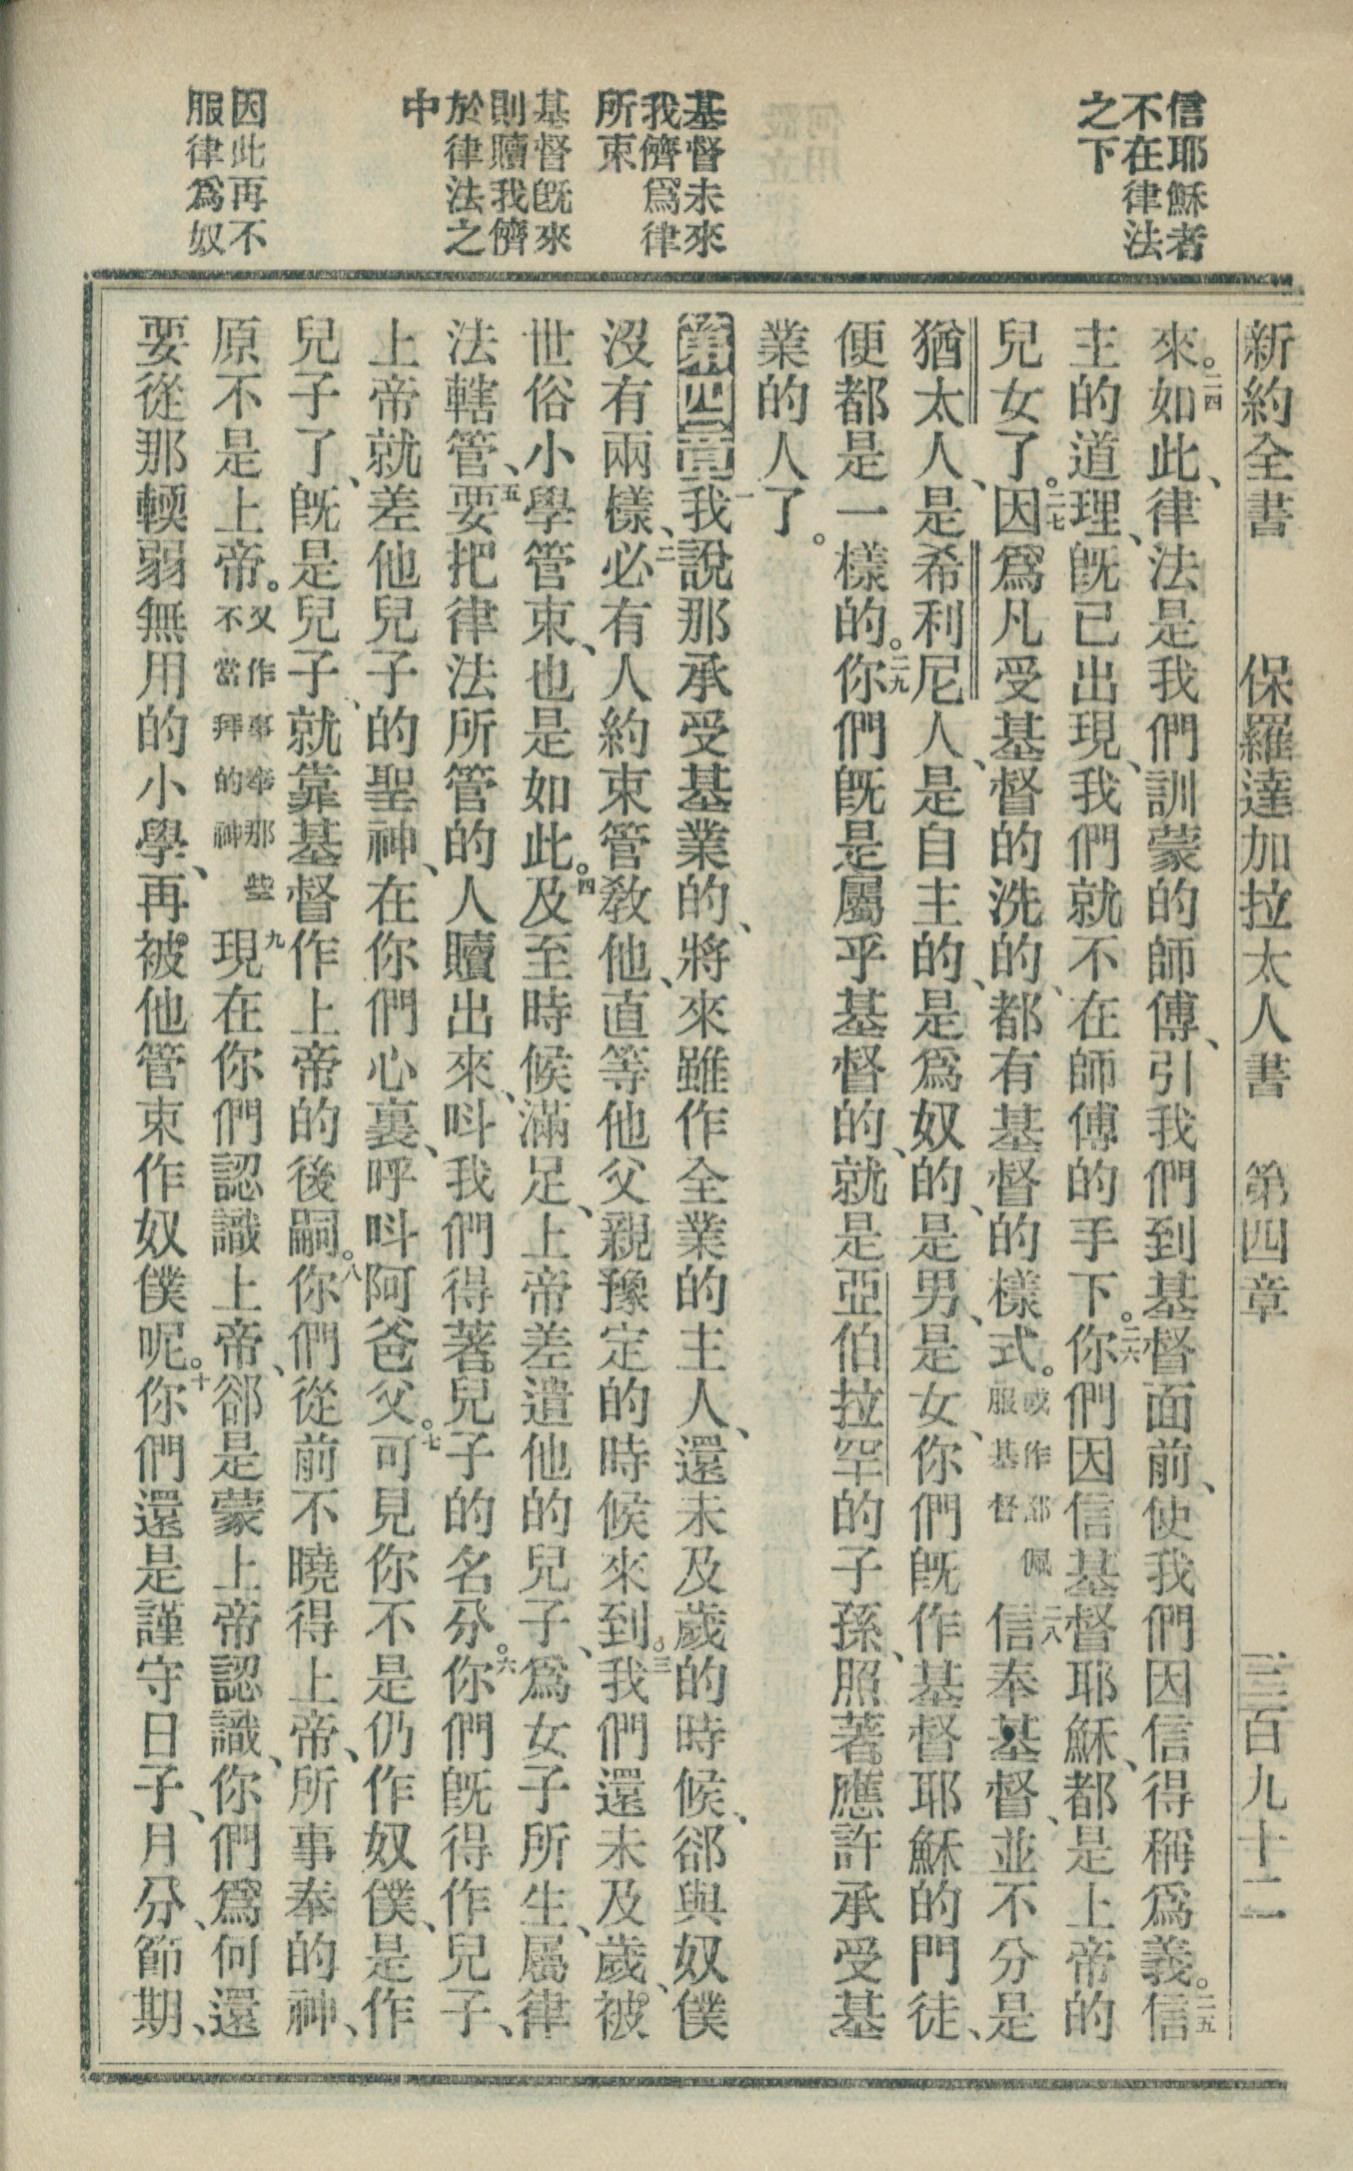 信耶穌者
不在律法
之下
基督未來
我儕爲律
所束
基督既來
則贖我儕
於律法之
中
因此再不
服律爲奴
新約全書 保羅達加拉太人書 第四章 三百九十二
來。二四如此、律法是我們訓蒙的師傅、引我們到基督面前、使我們因信得稱爲義。二五信
主的道理、旣已出現、我們就不在師傅的手下。二六你們因信基督耶穌、都是上帝的
兒女了。二七因爲凡受基督的洗的、都有基督的樣式。或作都佩服基督二八信奉基督、並不分是
猶太人、是希利尼人、是自主的、是爲奴的、是男、是女、你們旣作基督耶穌的門徒、
便都是一樣的。二九你們旣是屬乎基督的、就是亞伯拉罕的子孫、照著應許承受基
業的人了。
第四章一我說那承受基業的、將來雖作全業的主人、還未及歲的時候、郤與奴僕
沒有兩樣、二必有人約束管敎他、直等他父親豫定的時候來到。三我們還未及歲、被
世俗小學管束、也是如此。四及至時候滿足、上帝差遣他的兒子、爲女子所生、屬律
法轄管、五要把律法所管的人贖出來、呌我們得著兒子的名分。六你們旣得作兒子、
上帝就差他兒子的聖神、在你們心裏、呼呌阿爸父。七可見你不是仍作奴僕、是作
兒子了、旣是兒子、就靠基督作上帝的後嗣。八你們從前不曉得上帝、所事奉的神、
原不是上帝。又作事奉那些不當拜的神九現在你們認識上帝、郤是蒙上帝認識、你們爲何還
要從那輭弱無用的小學、再被他管束作奴僕呢。十你們還是謹守日子、月分、節期、